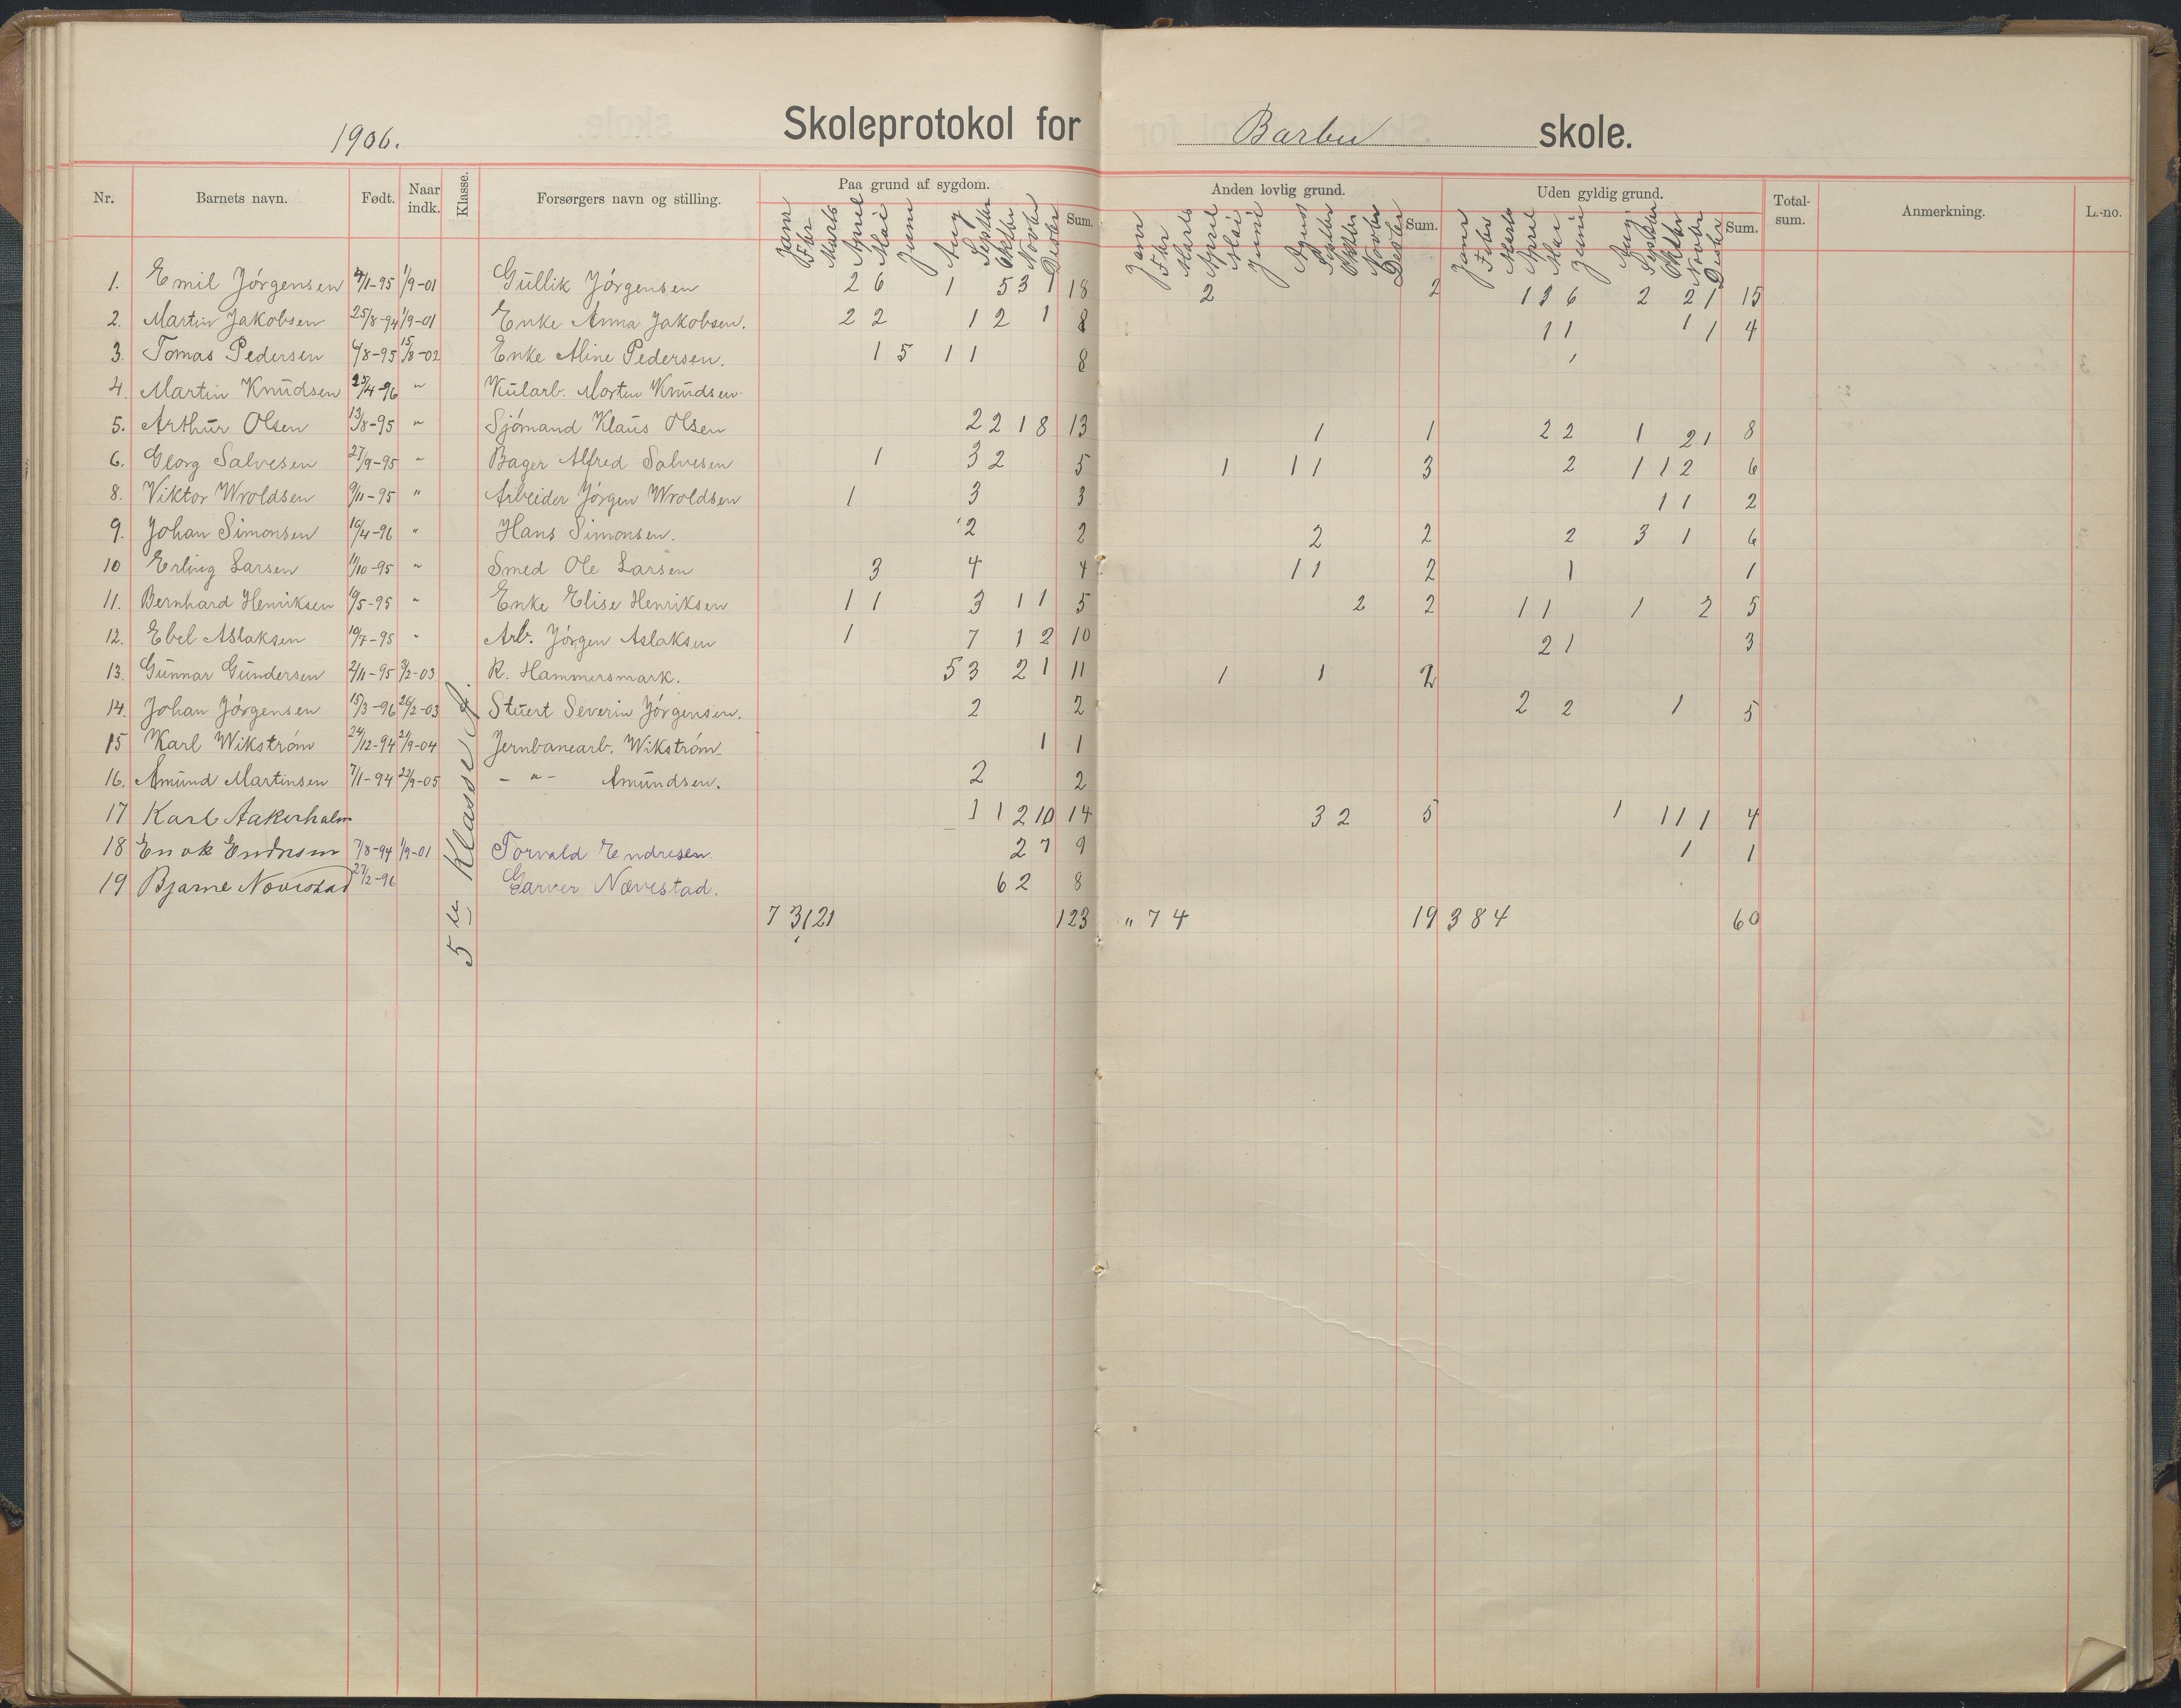 1906.
Skoleprotokol for Barbu skole.
Nr. Barnets navn. Født. Naar indk. Klasse. Forsørgers navn og stilling. Paa grund af sygdom. Anden lovlig grund. Uden gyldig grund. Total-sum. Anmerkning. L.-no.
Janr Fbr Marts April Mai Juni Aug Septbr Oktbr Novbr Desbr Sum. Janr Fbr Marts April Mai Juni August Septbr Oktbr Novbr Desbr Sum. Janr Febr Marts April Mai Juni Aug. Septbr Oktbr Novbr Desbr Sum.
1. Emil Jörgensen 4/1-95 1/9-01 Gullik Jörgensen 2 6 1 5 3 1 18 2 2 1 3 6 2 2 1 15
2. Martin Jakobsen 25/8-94 1/9-01 Enke Anna Jakobsen. 2 2 1 2 1 8 1 1 1 1 4
3. Tomas Pedersen 4/8-95 15/8-02 Enke Aline Pedersen. 1 5 1 1 8 1
4. Martin Knudsen 25/4-96 " Kularb. Morten Knudsen.
5. Arthur Olsen 13/8-95 " Sjömand Klaus Olsen 2 2 1 8 13 1 1 2 2 1 2 1 8
6. Georg Salvesen 27/9-95 " Bager Alfred Salvesen 1 3 2 5 1 1 1 3 2 1 1 2 6
8. Viktor Wroldsen 9/11-95 " Arbeider Jörgen Wroldsen 1 3 3 1 1 2
9. Johan Simonsen 16/4-96 " Hans Simonsen. 2 2 2 2 2 3 1 6
10 Erling Larsen 11/10-95 " Smed Ole Larsen 3 4 4 1 1 2 1 1
11. Bernhard Henriksen 19/5-95 " Enke Elise Henriksen 1 1 3 1 1 5 2 2 1 1 1 2 5
12. Ebel Aslaksen 10/7-95 " Arb. Jörgen Aslaksen 1 7 1 2 10 2 1 3
13. Gunnar Gundersen 2/11-95 3/2-03 R. Hammersmark. 5 3 2 1 11 1 1 2
14. Johan Jörgensen 15/3-96 26/2-03 Stuert Severin Jörgensen. 2 2 2 2 1 5
15 Karl Wikström 24/12-94 21/9-04 Jernbanearb. Wikström 1 1
16. Amund Martinsen 7/1-94 23/9-05 - " - Amundsen. 2 2
17 Karl Aakerholm 1 1 2 10 14 3 2 5 1 1 1 1 4
18 Enok Endresen 7/8-94 1/9-01 Torvald Endresen. 2 7 9 1 1
19 Bjarne Nævestad 27/2-96 Garver Nævestad. 6 2 8
7 3 12 1 123 " 7 4 19 3 8 4 60
5te Klasse A.